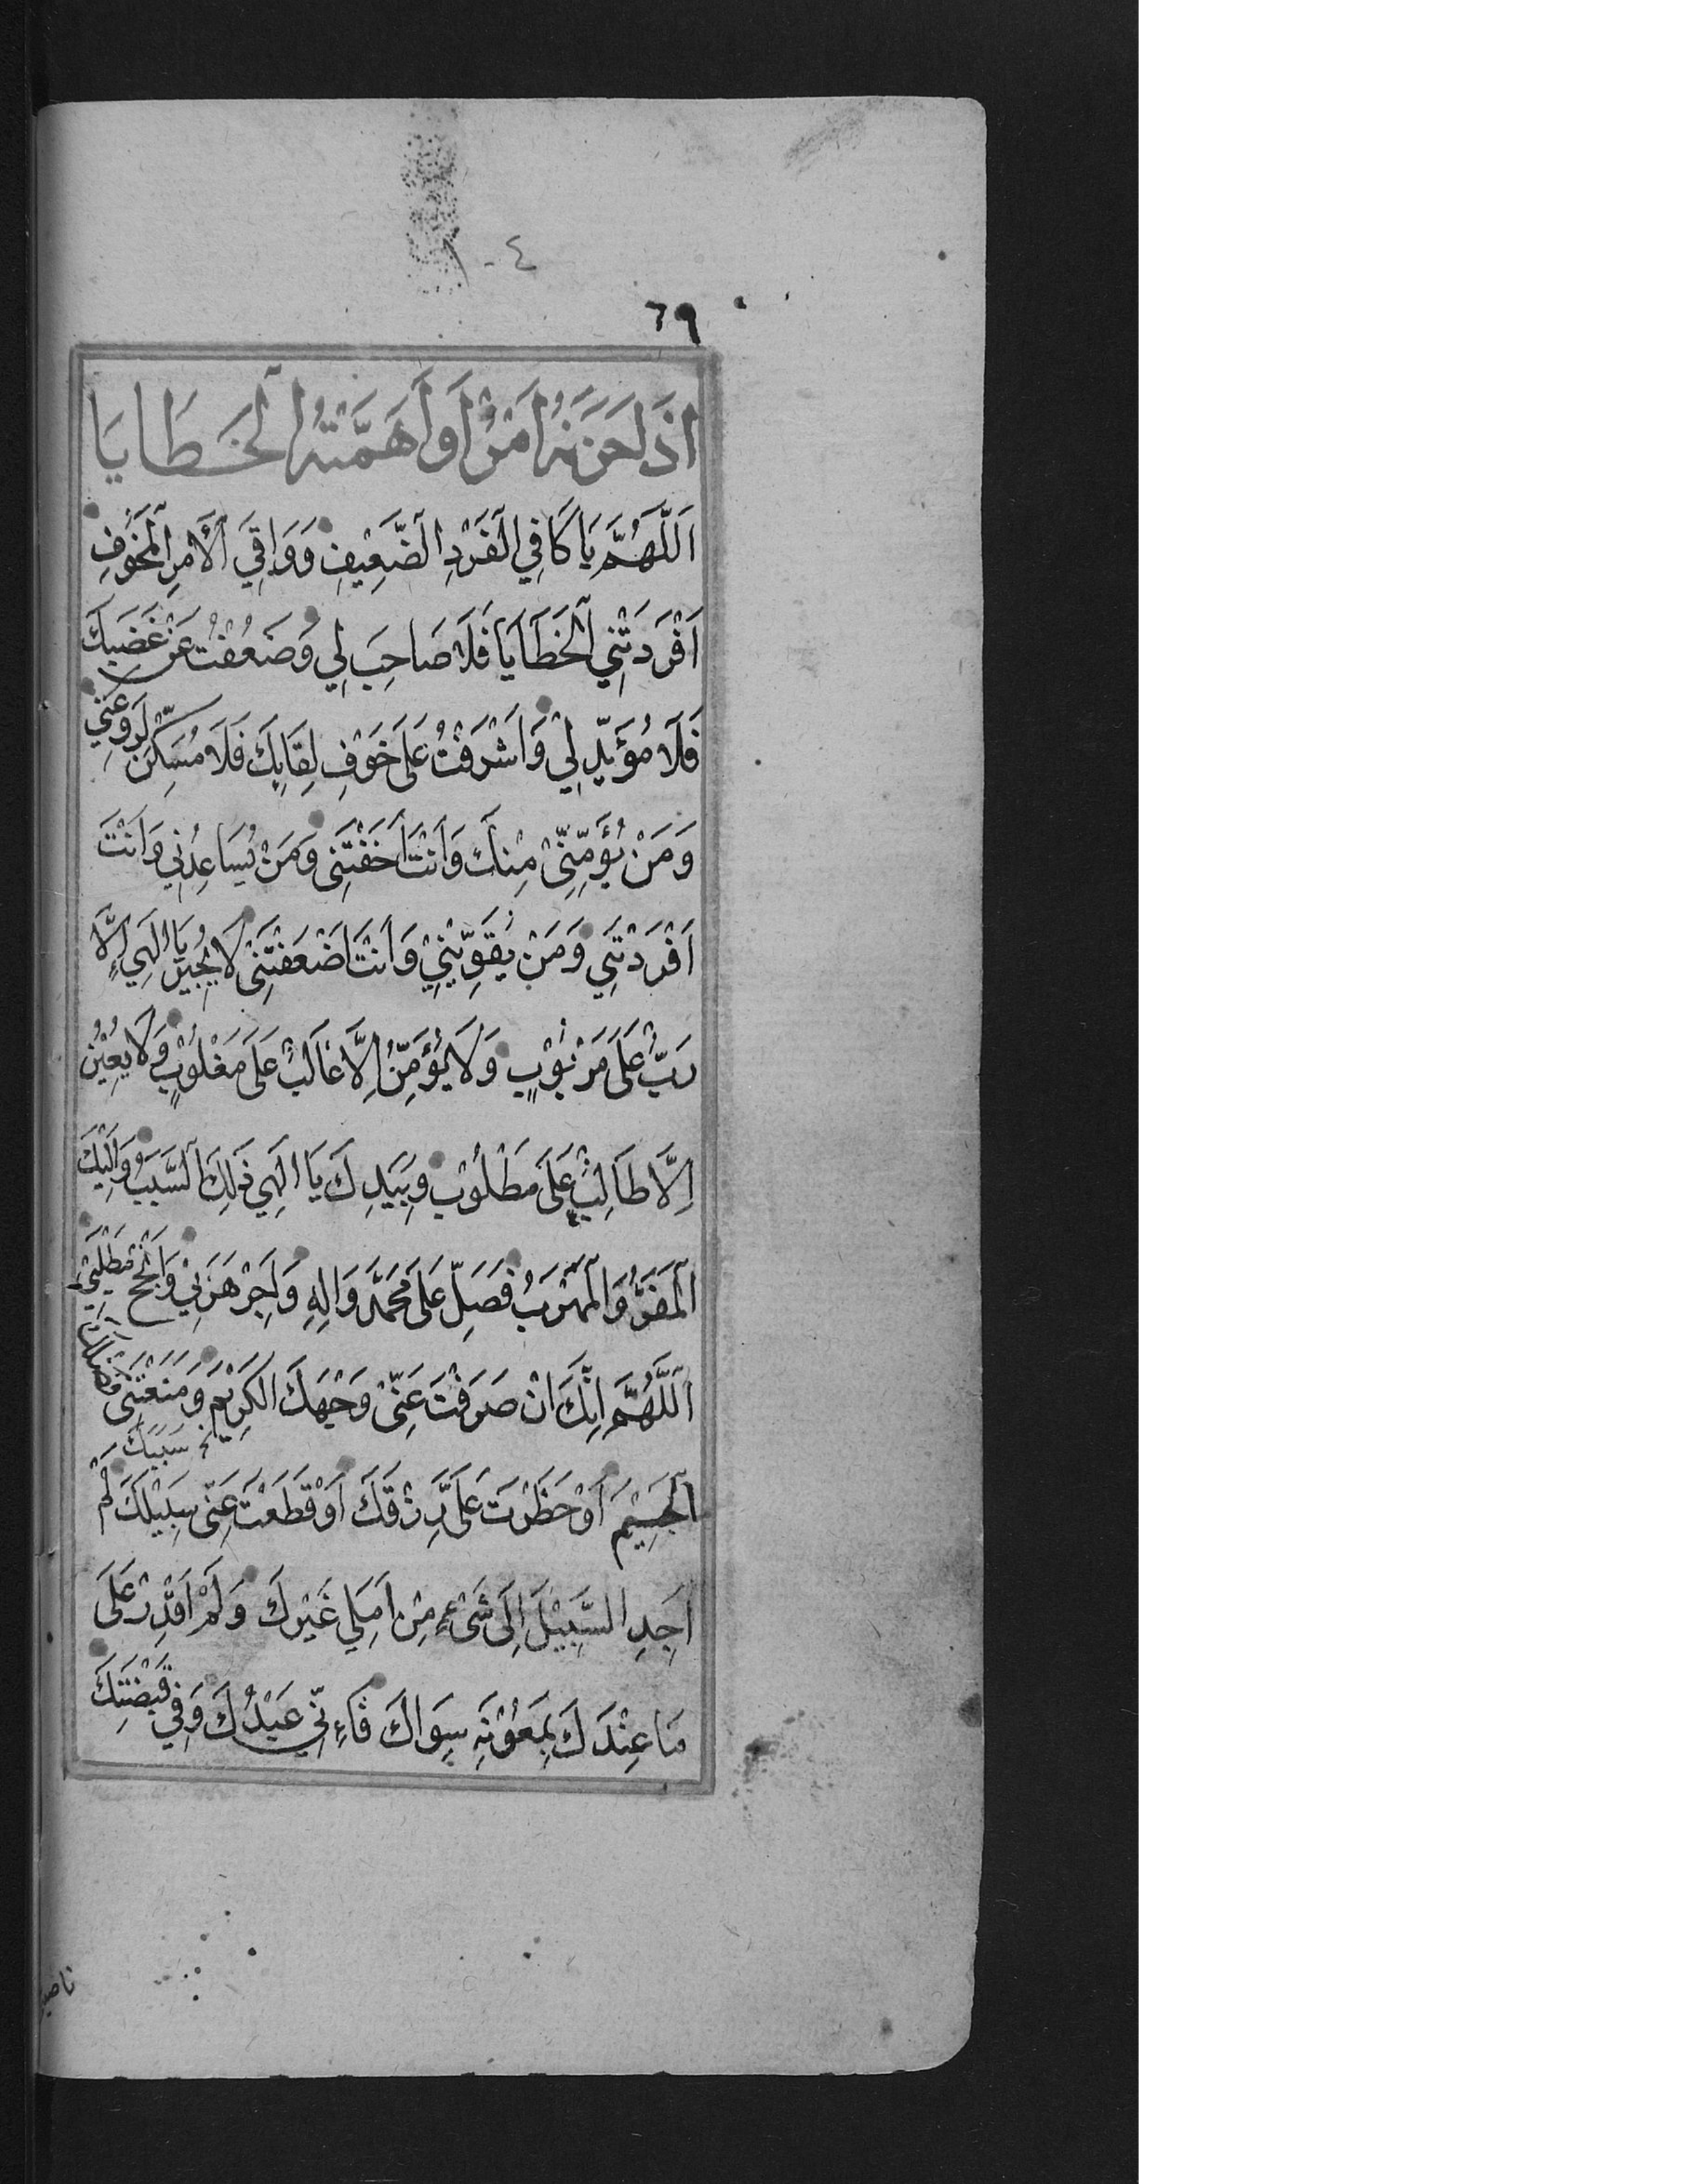 ٤
٦٩
اِذَا حَزَنَهُ اَمْرٌ اَوْ اَهَمَّتْهُ الْخَطَايَا
اَللّٰهُمَّ يَا كَافِيَ الْفَرْدِ الضَّعِيْفِ وَوَاقِيَ الْأَمْرِ الْمَخُوْفِ
اَفْرَدَتْنِي الْخَطَايَا فَلَا صَاحِبَ لِي وَضَعُفْتُ عَنْ غَضَبِكَ
فَلَا مُؤَيِّدَ لِيْ وَاَشْرَفْتُ عَلَى خَوْفِ لِقَايِكَ فَلَا مُسَكِّنَ لِرَوْعَتِي
وَمَنْ يُؤَمِّنُنِيْ مِنْكَ وَاَنْتَ اَخَفْتَنِي وَمَنْ يُسَاعِدُنِي وَاَنْتَ
اَفْرَدْتَنِي وَمَنْ يُقَوِّيْنِيْ وَاَنْتَ اَضْعَفْتَنِيْ لَا يُجِيْرُ يَا اِلٰهِي اِلَّا
رَبٌّ عَلَى مَرْبُوْبٍ وَلَا يُؤَمِّنُ اِلَّا غَالِبٌ عَلَى مَغْلُوْبٍ وَلَا يُعِيْنُ
اِلَّا طَالِبٌ عَلَى مَطْلُوْبٍ وَبِيَدِكَ يَا اِلٰهِي ذٰلِكَ السَّبَبُ وَاِلَيْكَ
الْمَفَرُّ وَالْمَهْرَبُ فَصَلِّ عَلَى مُحَمَّدٍ وَاٰلِهِ وَاَجِرْ هَرَبِيْ وَاَنْجِحْ مَطْلَبِيْ
اَللّٰهُمَّ اِنَّكَ اِنْ صَرَفْتَ عَنِّيْ وَجْهَكَ الْكَرِيْمَ وَمَنَعْتَنِيْ فَضْلَكَ
سَبَبَكَ
الْجَسِيْمَ اَوْ حَظَرْتَ عَلَيَّ رِزْقَكَ اَوْ قَطَعْتَ عَنِّي سَبِيْلَكَ لَمْ
اَجِدِ السَّبِيْلَ اِلَى شَيْءٍ مِنْ اَمَلِي غَيْرَكَ وَلَمْ اَقْدِرْ عَلَى
مَا عِنْدَكَ بِمَعُوْنَةِ سِوَاكَ فَاِنِّي عَبْدُكَ وَفِي قَبْضَتِكَ